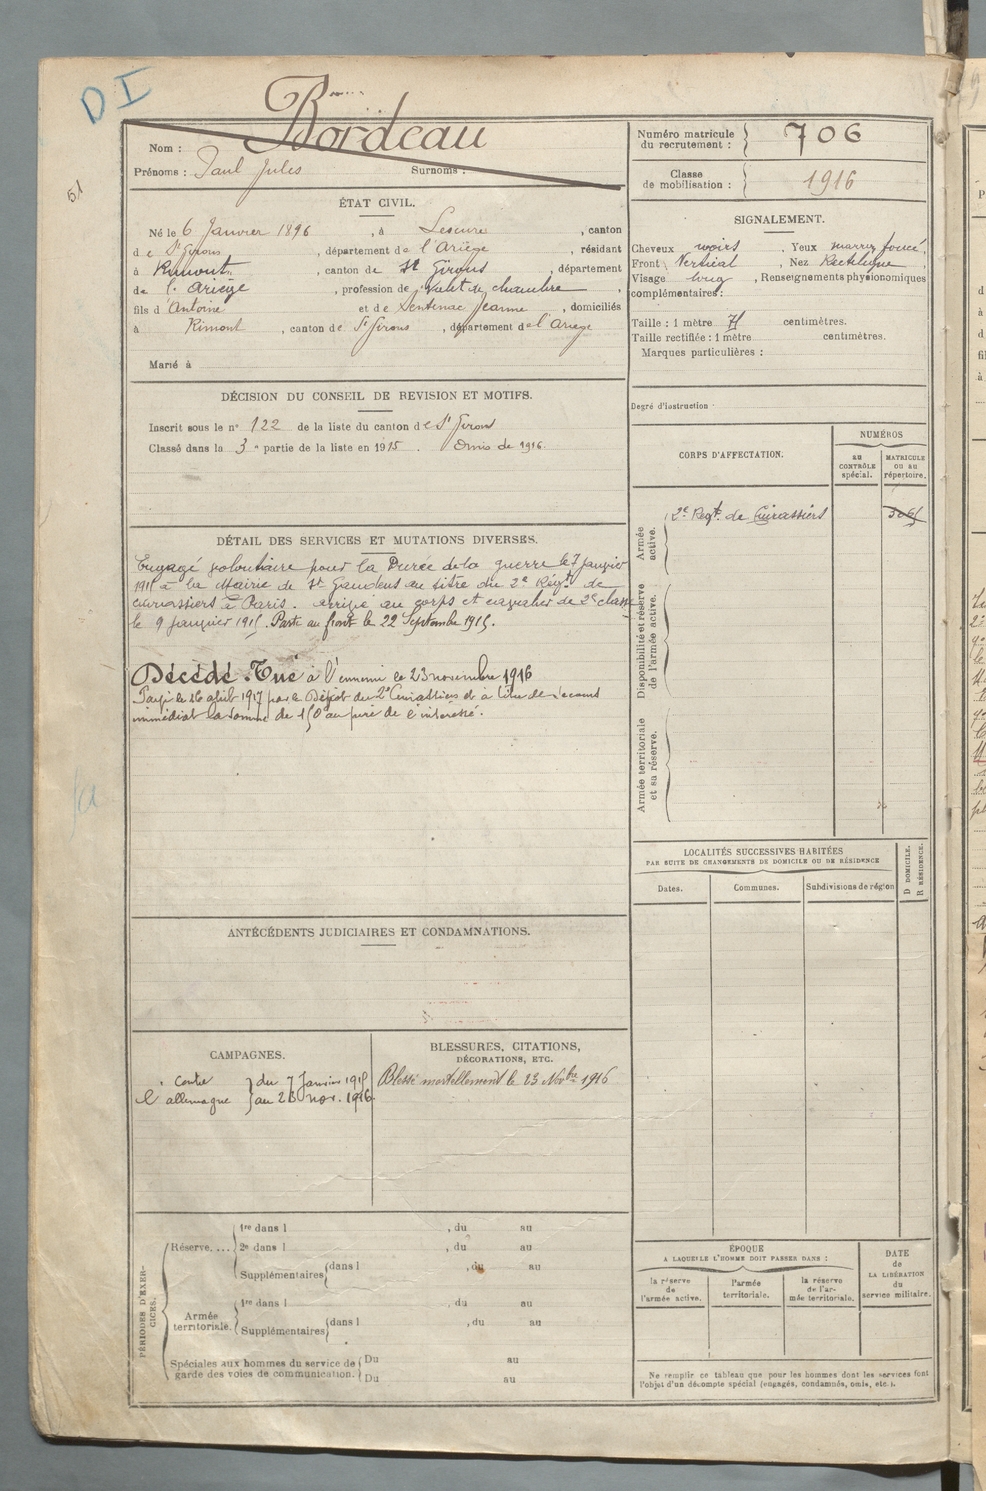 DI
51
Nom : Bordeau
Prénoms : Paul Jules Surnoms :
Numéro matricule du recrutement : 706
Classe de mobilisation : 1916
ÉTAT CIVIL.
Né le 6 Janvier 1896, à Lescure, canton
de St Girons, département de l'Ariège, résidant
à Rimont, canton de St Girons, département
de l'Ariège, profession de Valet de chambre,
fils d'Antoine et de Sentenac Jeanne, domiciliés
à Rimont, canton de St Girons, département de l'Ariège
Marié à
SIGNALEMENT.
Cheveux noirs, Yeux marron foncé,
Front Vertical, Nez Rectiligne
Visage long, Renseignements physionomiques
complémentaires :
Taille : 1 mètre 71 centimètres.
Taille rectifiée : 1 mètre centimètres.
Marques particulières :
Degré d'instruction
DÉCISION DU CONSEIL DE REVISION ET MOTIFS.
Inscrit sous le n° 122 de la liste du canton de St Girons
Classé dans la 3e partie de la liste en 1915. Omis de 1916.
CORPS D'AFFECTATION.
NUMÉROS
au CONTRÔLE spécial.
MATRICULE ou au répertoire.
Armée active.
2e Régt. de Cuirassiers
Disponibilité et réserve de l'armée active.
Armée territoriale et sa réserve.
DÉTAIL DES SERVICES ET MUTATIONS DIVERSES.
Engagé volontaire pour la Durée de la guerre le 7 janvier
1915 à la Mairie de St Gaudens au titre du 2e Régt. de
cuirassiers à Paris. Arrivé au corps et cavalier de 2e classe
le 9 janvier 1915. Parti au front le 22 Septembre 1915.
Décédé. Tué à l'ennemi le 23 novembre 1916
Payé le 16 août 1917 par le Dépôt du 2e Cuirassiers et à titre de secours
immédiat la somme de 150 au père de l'intéressé.
LOCALITÉS SUCCESSIVES HABITÉES
PAR SUITE DE CHANGEMENTS DE DOMICILE OU DE RÉSIDENCE
D DOMICILE. R RÉSIDENCE.
Dates. Communes. Subdivisions de région
ANTÉCÉDENTS JUDICIAIRES ET CONDAMNATIONS.
CAMPAGNES.
Contre du 7 Janvier 1915
l'allemagne au 23 nov. 1916.
BLESSURES, CITATIONS,
DÉCORATIONS, ETC.
Blessé mortellement le 23 Novbre 1916
PÉRIODES D'EXERCICES.
Réserve....
1re dans l , du au
2e dans l , du au
Supplémentaires dans l , du au
Armée territoriale.
1re dans l , du au
Supplémentaires dans l , du au
Spéciales aux hommes du service de Du au
garde des voies de communication. Du au
ÉPOQUE
A LAQUELLE L'HOMME DOIT PASSER DANS :
la réserve de l'armée active.
l'armée territoriale.
la réserve de l'armée territoriale.
DATE de LA LIBÉRATION du service militaire.
Ne remplir ce tableau que pour les hommes dont les services font
l'objet d'un décompte spécial (engagés, condamnés, omis, etc.).